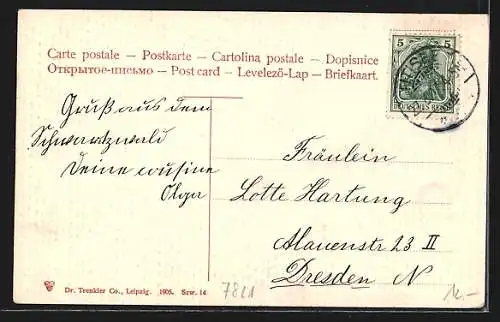 Carte postale – Postkarte – Cartolina postale – Dopisnice
Открытое-письмо – Post card – Levelező-Lap – Briefkaart.
5 5
DEUTSCHES REICH
Gruß aus dem
Schwartzwald
Deine cousine
Olga
Fräulein
Lotte Hartung
Alauenstr 23 II
Dresden N
Dr. Trenkler Co., Leipzig. 1905. Szw. 14
7821